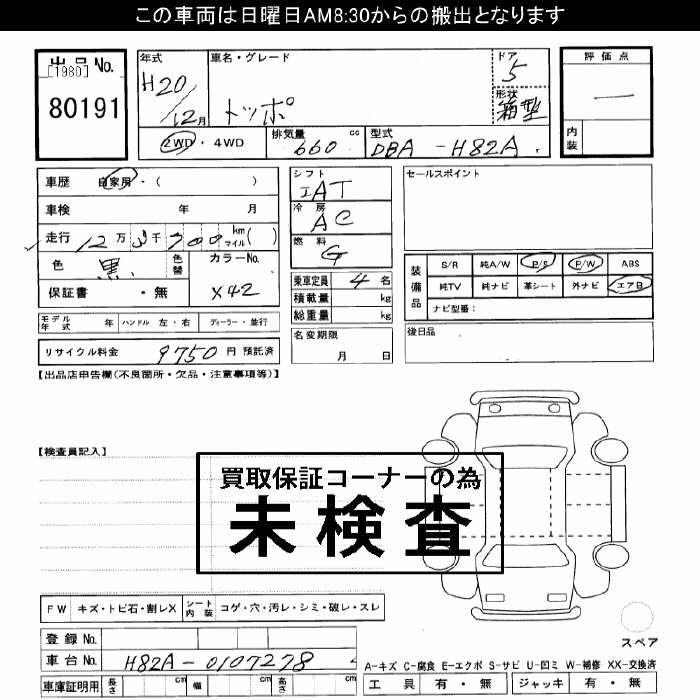 この車両は日曜日AM8:30からの搬出となります
出品No.
[1980]
80191
年式
H20/12月
車名・グレード
トッポ
ドア
5
形状
箱型
2WD・4WD
排気量 660 cc
型式 DBA-H82A
評価点
内装
車歴 自家用・( )
車検 年 月
走行 12万3千700 km マイル( )
色 黒 色替
カラーNo. X42
保証書 ・無
シフト
IAT
冷房
AC
燃料
G
乗車定員 4名
積載量 kg
総重量 kg
名変期限
月 日
セールスポイント
装備品
S/R 純A/W P/S P/W ABS
純TV 純ナビ 革シート 外ナビ エアB
ナビ型番:
後日品
モデル年式 年 ハンドル 左・右 ディーラー・並行
リサイクル料金 9750円 預託済
【出品店申告欄(不良箇所・欠品・注意事項等)】
【検査員記入】
買取保証コーナーの為
未検査
FW キズ・トビ石・割レX シート内装 コゲ・穴・汚レ・シミ・破レ・スレ
登録No.
車台No. H82A-0107278
車庫証明用 長さ cm 幅 cm 高さ cm
スペア
A-キズ C-腐食 E-エクボ S-サビ U-凹ミ W-補修 XX-交換済
工具 有・無 ジャッキ 有・無